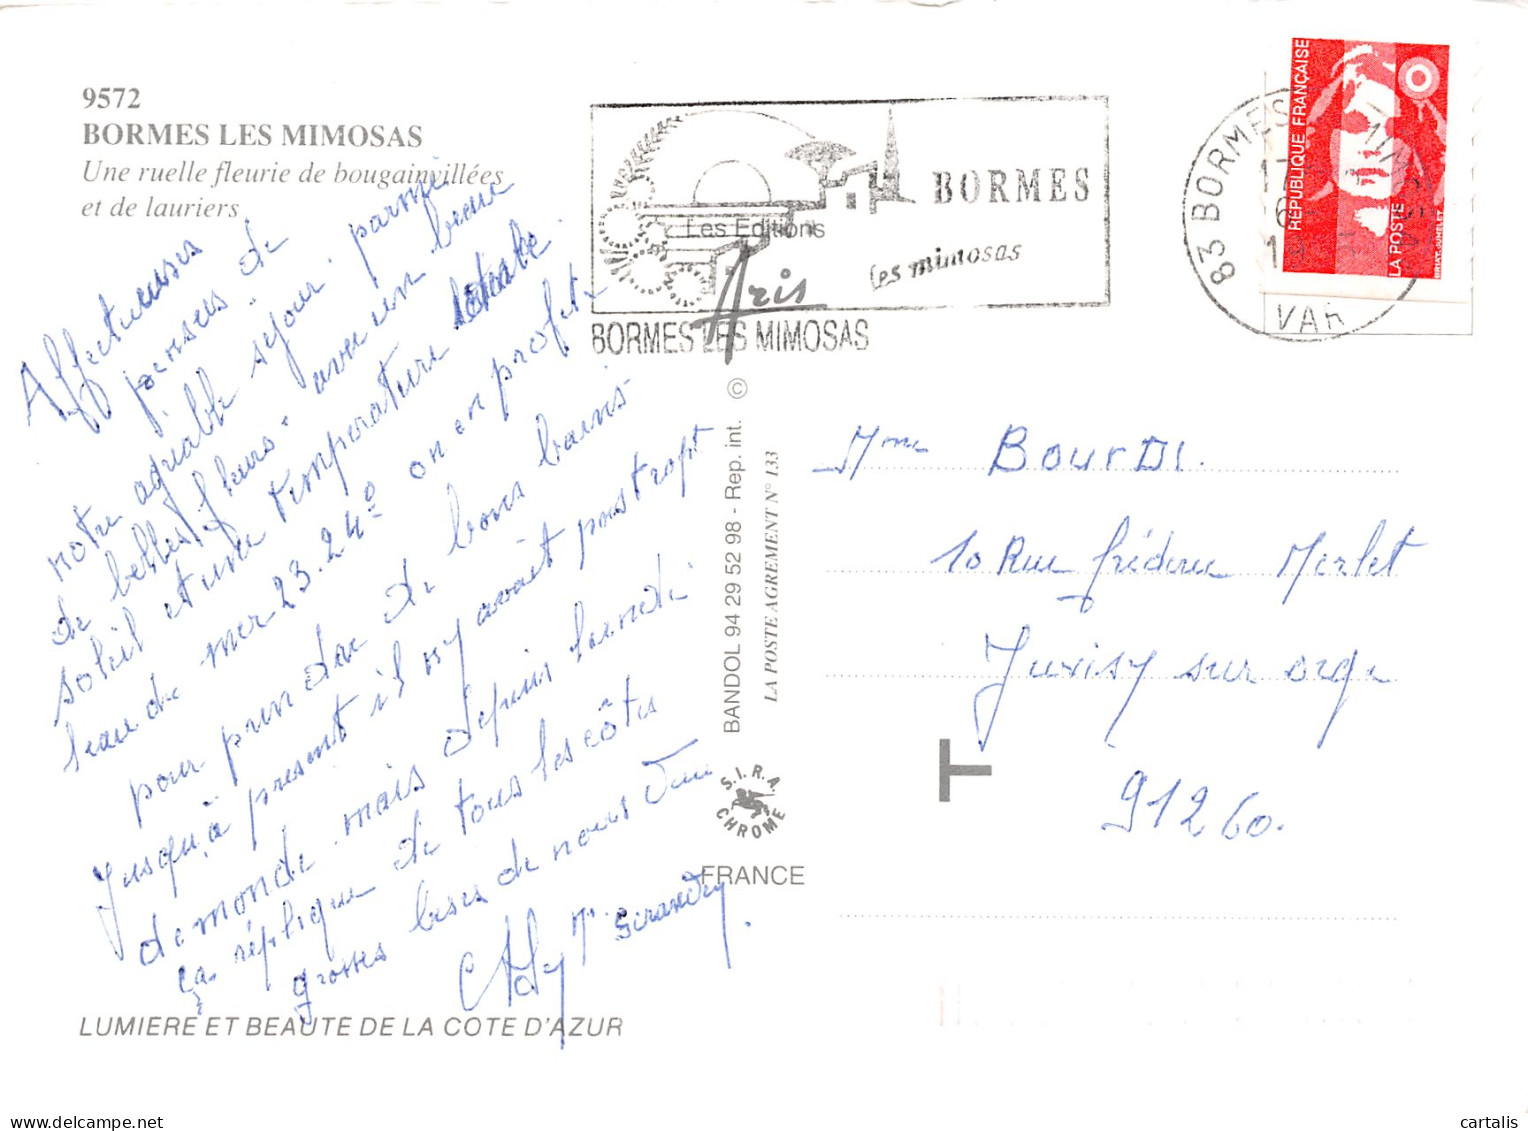 9572
BORMES LES MIMOSAS
Une ruelle fleurie de bougainvillées
et de lauriers
Affectueuses
pensées de
notre agréable séjour parmi
de belles fleurs avec un beau
soleil et une température idéale
l'eau de mer 23.24° on en profite
pour prendre de bons bains
jusqu'à présent il n'y avait pas trop
de monde mais depuis lundi
ça réplique de tous les côtés
grosses bises de nous deux
BORMES
les mimosas
Les Editions
Aris
BORMES LES MIMOSAS
©
BANDOL 94 29 52 98 - Rep. int.
LA POSTE AGREMENT N° 133
S.I.R.A.
CHROME
FRANCE
83 BORMES
VAR
RÉPUBLIQUE FRANÇAISE
LA POSTE
Mme BourDi
10 Rue frédéric Merlet
Juvisy sur orge
T
91260.
LUMIERE ET BEAUTE DE LA COTE D'AZUR
cartalis